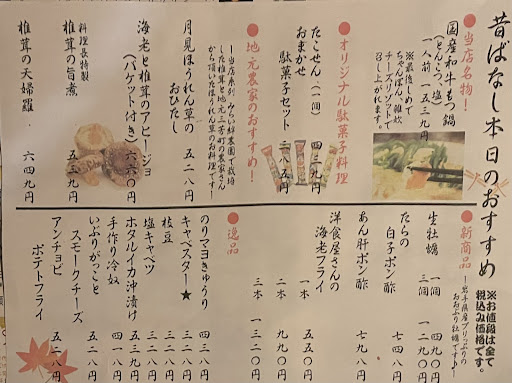 昔ばなし本日のおすすめ
※お値段は全て
税込み価格です。
●当店名物！
国産和牛もつ鍋
(とんこつ、塩)
一人前 一五三九円
※最後しめで
ちゃんぽん、雑炊
チーズリゾットで
召し上がれます。
●オリジナル駄菓子料理
たこせん(一個) 四三九円
おまかせ
駄菓子セット 三八五円
●地元農家のおすすめ！
ー当店系列 みらい絆農園で栽培
した椎茸と地元三芳町の農家さん
から頂いたほうれん草のお料理です！
月見ほうれん草の
おひたし 五二八円
海老と椎茸のアヒージョ
(バケット付き) 六六〇円
料理長特製
椎茸の旨煮 五三九円
椎茸の天婦羅 六四九円
●新商品
ー岩手県産プリップリの
おおぶり牡蠣です♪ー
生牡蠣 一個 四九〇円
三個 一二九〇円
たらの
白子ポン酢 七四八円
あん肝ポン酢 七九八円
洋食屋さんの
海老フライ 一本 五五〇円
二本 九九〇円
三本 一三二〇円
●逸品
のりマヨきゅうり 四三八円
キャベスター★ 三二八円
枝豆 三二八円
塩キャベツ 三二八円
ホタルイカ沖漬け 五三九円
手作り冷奴 四一八円
いぶりがっこと
スモークチーズ 五二八円
アンチョビ
ポテトフライ 五二八円